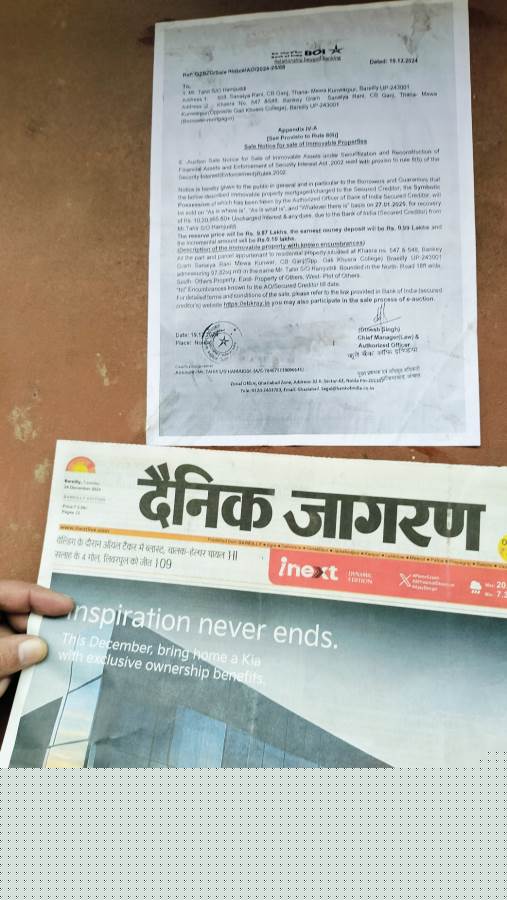 BOI
Relationship beyond Banking
Dated: 19.12.2024
To,
1. Mr. Tahir S/O Hamjuddi
Address 1: 558, Sanaiya Rani, CB Ganj, Thana- Mewa Kunwarpur, Bareilly UP-243001
Address 2 : Khasra No. 547 &548, Bankey Gram Sanaiya Rani, CB Ganj, Thana- Mewa
Kunwarpur(Opposite Gali Khusro College), Bareilly UP-243001
(Borrower-mortgagor)
Appendix IV-A
[See Proviso to Rule 8(6)]
Sale Notice for sale of Immovable Properties
E -Auction Sale Notice for Sale of Immovable Assets under Securitization and Reconstruction of
Financial Assets and Enforcement of Security Interest Act ,2002 read with proviso to rule 8(6) of the
Security Interest(Enforcement)Rules,2002.
Notice is hereby given to the public in general and in particular to the Borrowers and Guarantors that
the below described immovable property mortgaged/charged to the Secured Creditor, the Symbolic
Possession of which has been taken by the Authorized Officer of Bank of India Secured Creditor, will
be sold on "As is where is", "As is what is", and "Whatever there is" basis on 27.01.2025, for recovery
of Rs. Uncharged Interest & any dues, due to the Bank of India (Secured Creditor) from
Mr.Tahir S/O Hamjuddi
The reserve price will be Rs. 9.87 Lakhs, the earnest money deposit will be Rs. 0.99 Lakhs and
the incremental amount will be Rs.0.10 lakhs.
(Description of the immovable property with known encumbrances)
All the part and parcel appurtenant to residential property situated at Khasra no. 547 & 548, Bankey
Gram Sanaiya Rani Mewa Kunwar, CB Ganj(Opp. Gali Khusro College) Bareilly UP-243001
in the name Mr. Tahir S/O Hamjuddi Bounded in the North- Road 18ft wide,
South- Others Property, East- Property of Others, West- Plot of Others.
"No" Encumbrances known to the AO/Secured Creditor till date.
For detailed terms and conditions of the sale, please refer to the link provided in Bank of India (secured
creditor's) website https://ebkray.in you may also participate in the sale process of e-auction.
(Dinesh Singh)
Chief Manager(Law) &
Authorized Officer
Date: 19.12.2024
कृते बैंक ऑफ इण्डिया
Place:
Zonal Office, Ghaziabad Zone, Address:
Bareilly, Tuesday
24 December 2024
BAREILLY EDITION
Pages 12
दैनिक जागरण
www.inextlive.com
वेल्डिंग के दौरान ऑयल टैंकर में ब्लास्ट, चालक-हेल्पर घायल 1II
सलाह के 4 गोल, लिवरपूल को जीत 109
inext
DYNAMIC
EDITION
Inspiration never ends.
This December, bring home a Kia
with exclusive ownership benefits.